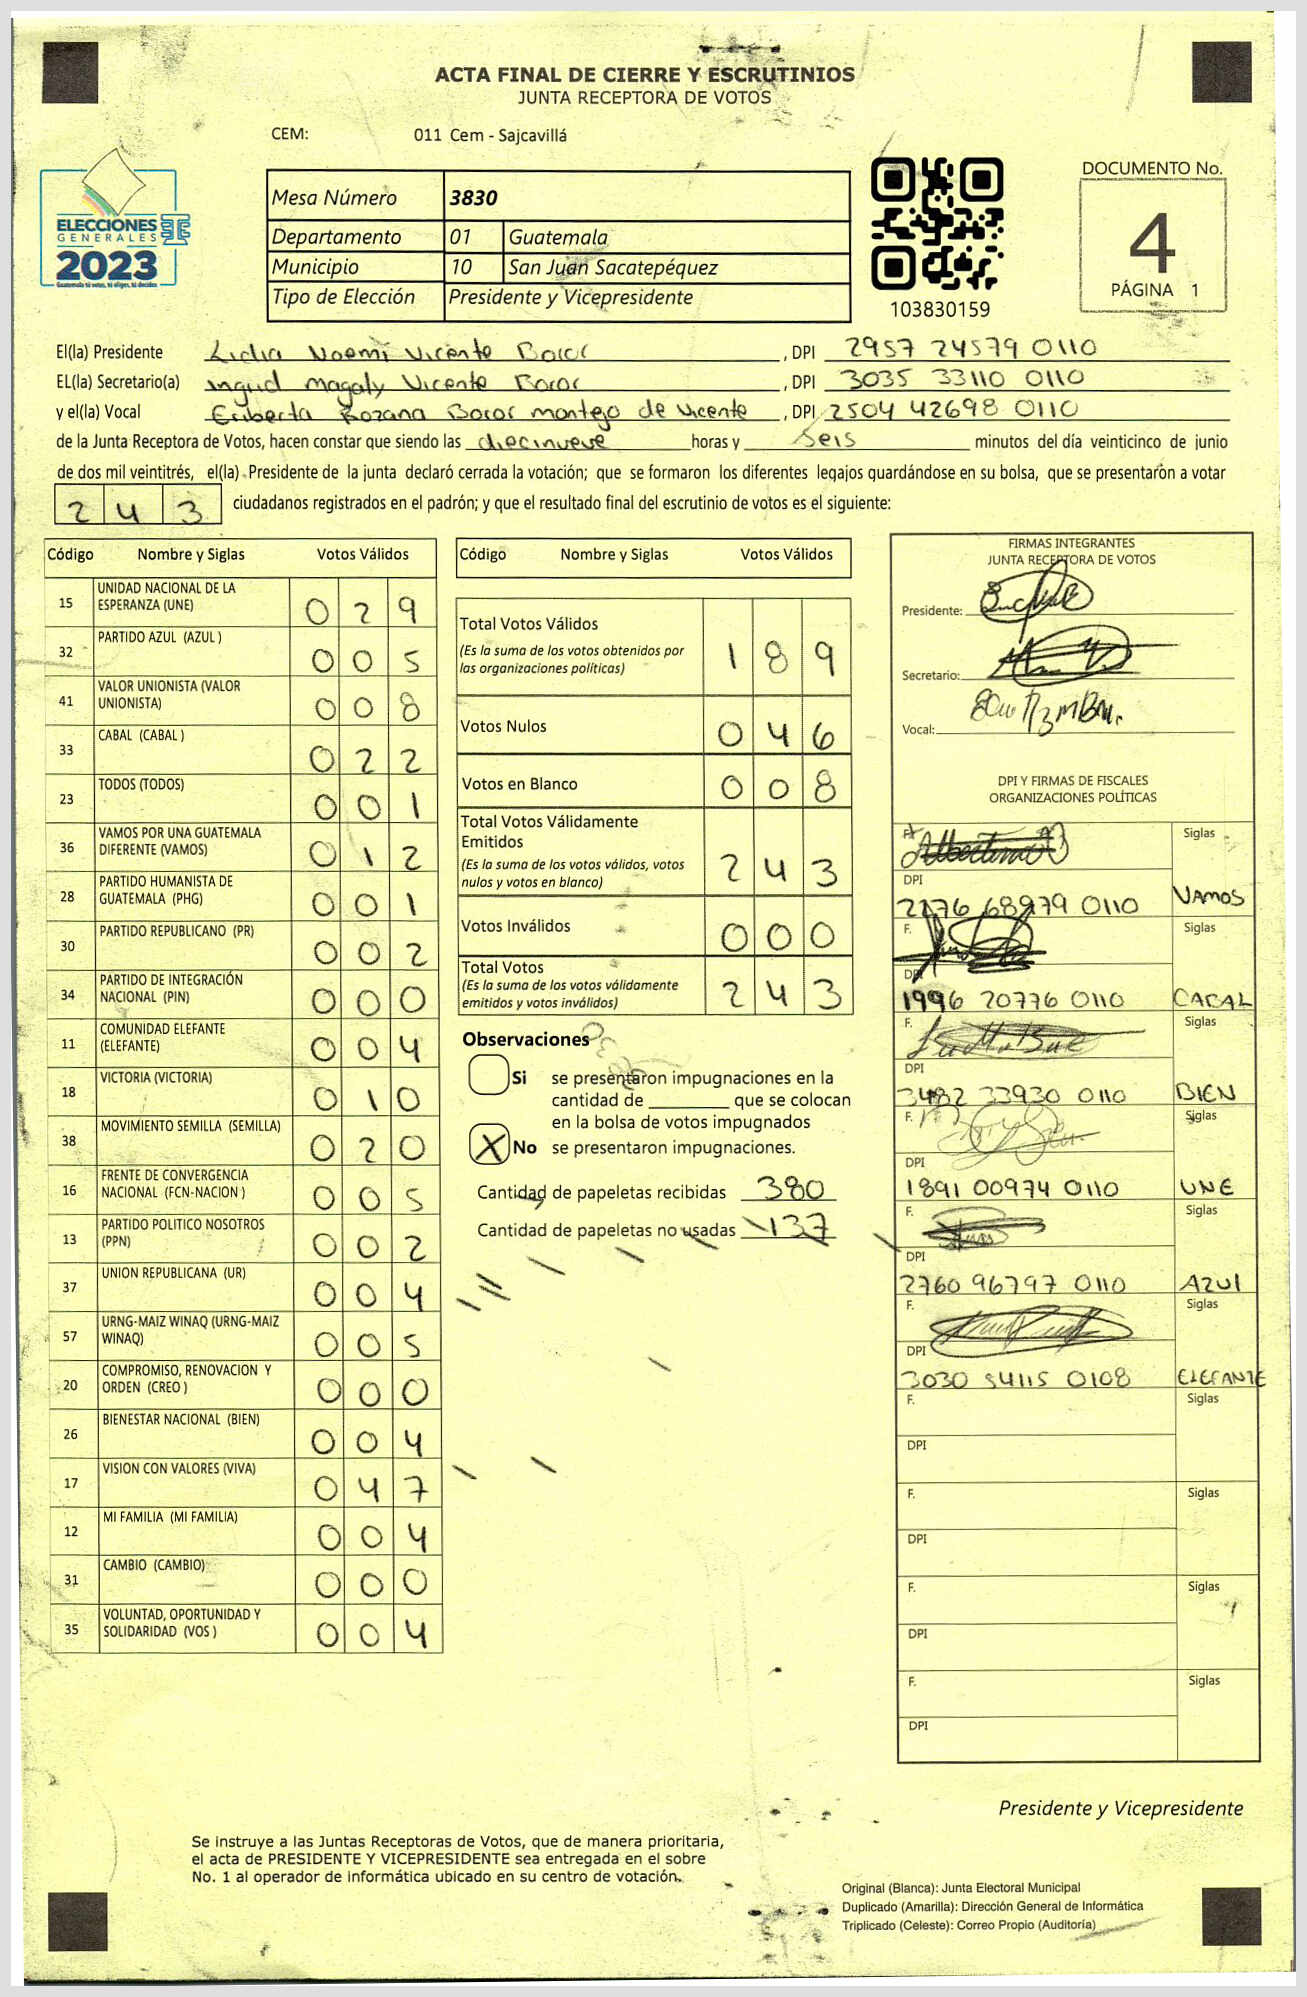 ACTA FINAL DE CIERRE Y ESCRUTINIOS
JUNTA RECEPTORA DE VOTOS
CEM: 011 Cem - Sajcavillá
ELECCIONES
GENERALES
2023
Guatemala tú votas, tú eliges, tú decides
Mesa Número 3830
Departamento 01 Guatemala
Municipio 10 San Juan Sacatepéquez
Tipo de Elección Presidente y Vicepresidente
103830159
DOCUMENTO No.
4
PÁGINA 1
El(la) Presidente Lidia Noemi Vicente Boror , DPI 2957 24579 0110
EL(la) Secretario(a) Ingrid Magaly Vicente Boror , DPI 3035 33110 0110
y el(la) Vocal Eriberta Rozana Boror montejo de Vicente , DPI 2504 42698 0110
de la Junta Receptora de Votos, hacen constar que siendo las diecinueve horas y Seis minutos del día veinticinco de junio
de dos mil veintitrés, el(la) Presidente de la junta declaró cerrada la votación; que se formaron los diferentes legajos guardándose en su bolsa, que se presentaron a votar
243 ciudadanos registrados en el padrón; y que el resultado final del escrutinio de votos es el siguiente:
Código Nombre y Siglas Votos Válidos
15 UNIDAD NACIONAL DE LA ESPERANZA (UNE) 029
32 PARTIDO AZUL (AZUL ) 005
41 VALOR UNIONISTA (VALOR UNIONISTA) 008
33 CABAL (CABAL ) 022
23 TODOS (TODOS) 001
36 VAMOS POR UNA GUATEMALA DIFERENTE (VAMOS) 012
28 PARTIDO HUMANISTA DE GUATEMALA (PHG) 001
30 PARTIDO REPUBLICANO (PR) 002
34 PARTIDO DE INTEGRACIÓN NACIONAL (PIN) 000
11 COMUNIDAD ELEFANTE (ELEFANTE) 004
18 VICTORIA (VICTORIA) 010
38 MOVIMIENTO SEMILLA (SEMILLA) 020
16 FRENTE DE CONVERGENCIA NACIONAL (FCN-NACION ) 005
13 PARTIDO POLITICO NOSOTROS (PPN) 002
37 UNION REPUBLICANA (UR) 004
57 URNG-MAIZ WINAQ (URNG-MAIZ WINAQ) 005
20 COMPROMISO, RENOVACION Y ORDEN (CREO ) 000
26 BIENESTAR NACIONAL (BIEN) 004
17 VISION CON VALORES (VIVA) 047
12 MI FAMILIA (MI FAMILIA) 004
31 CAMBIO (CAMBIO) 000
35 VOLUNTAD, OPORTUNIDAD Y SOLIDARIDAD (VOS ) 004
Código Nombre y Siglas Votos Válidos
Total Votos Válidos 189
(Es la suma de los votos obtenidos por
las organizaciones políticas)
Votos Nulos 046
Votos en Blanco 008
Total Votos Válidamente
Emitidos 243
(Es la suma de los votos válidos, votos
nulos y votos en blanco)
Votos Inválidos 000
Total Votos 243
(Es la suma de los votos válidamente
emitidos y votos inválidos)
Observaciones
Si se presentaron impugnaciones en la
cantidad de ________ que se colocan
en la bolsa de votos impugnados
X No se presentaron impugnaciones.
Cantidad de papeletas recibidas 380
Cantidad de papeletas no usadas 137
FIRMAS INTEGRANTES
JUNTA RECEPTORA DE VOTOS
Presidente:
Secretario:
Vocal:
DPI Y FIRMAS DE FISCALES
ORGANIZACIONES POLÍTICAS
F. Siglas
DPI
2276 68979 0110 VAMOS
F. Siglas
DPI
1996 20776 0110 CACAL
F. Siglas
DPI
3482 33930 0110 BIEN
F. Siglas
DPI
1891 00974 0110 UNE
F. Siglas
DPI
2760 96797 0110 AZUl
F. Siglas
DPI
3030 54115 0108 ELEFANTE
F. Siglas
DPI
F. Siglas
DPI
F. Siglas
DPI
F. Siglas
DPI
Presidente y Vicepresidente
Se instruye a las Juntas Receptoras de Votos, que de manera prioritaria,
el acta de PRESIDENTE Y VICEPRESIDENTE sea entregada en el sobre
No. 1 al operador de informática ubicado en su centro de votación.
Original (Blanca): Junta Electoral Municipal
Duplicado (Amarilla): Dirección General de Informática
Triplicado (Celeste): Correo Propio (Auditoría)